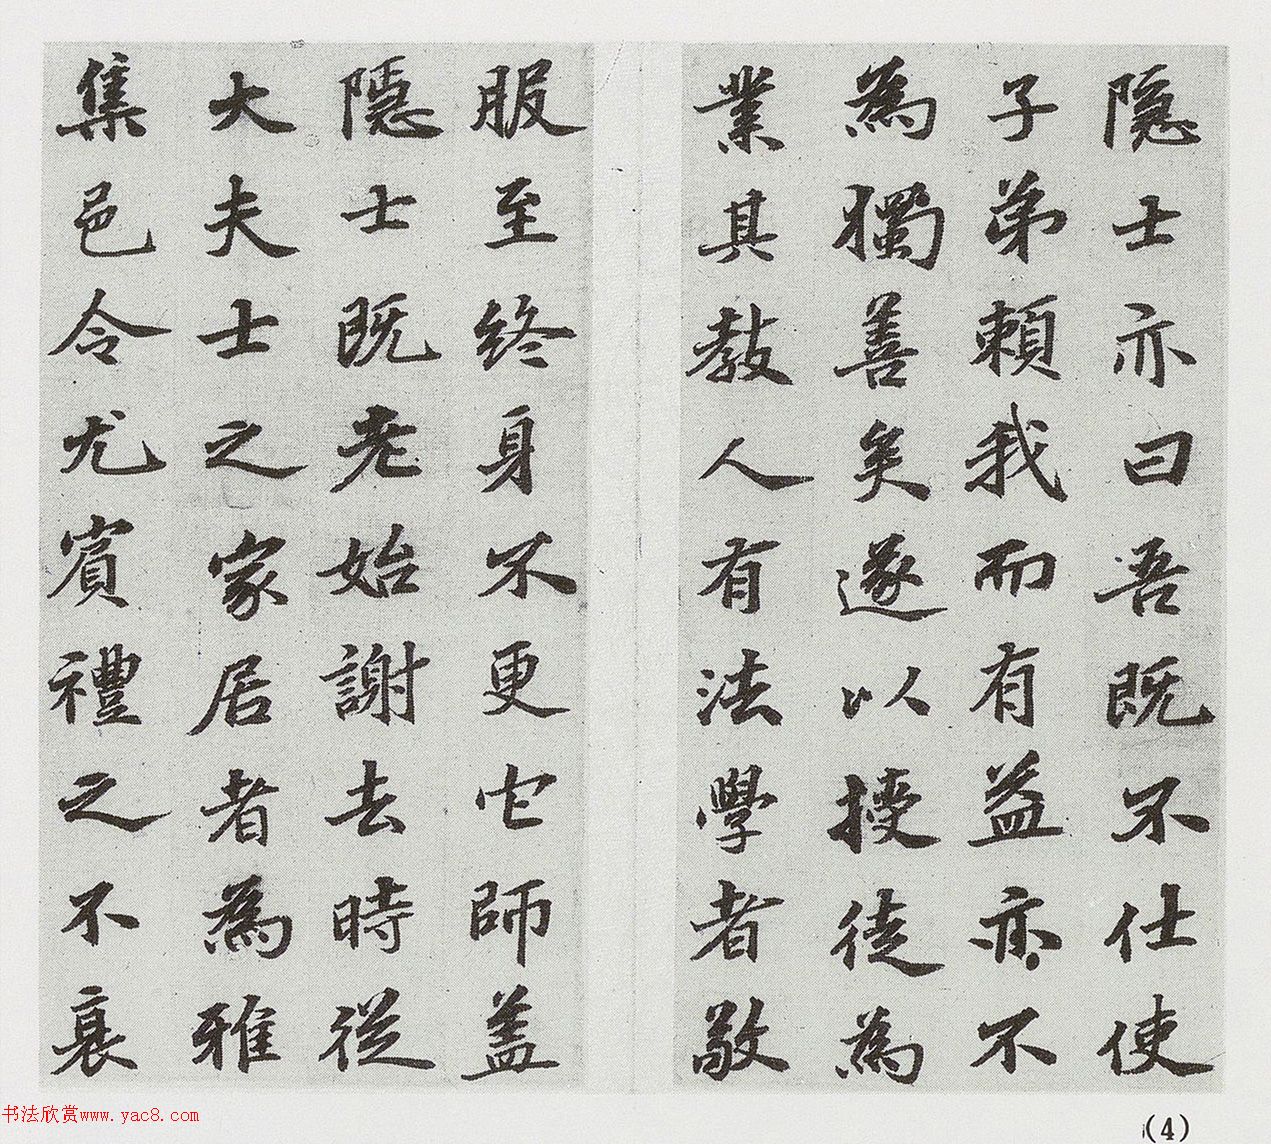 隐士亦曰吾既不仕使
子弟賴我而有益亦不
為獨善矣遂以授徒為
業其教人有法學者敬
服至終身不更它師盖
隱士既老始謝去時從
大夫士之家居者為雅
集邑令尤賓禮之不衰
书法欣赏www.yac8.com
(4)